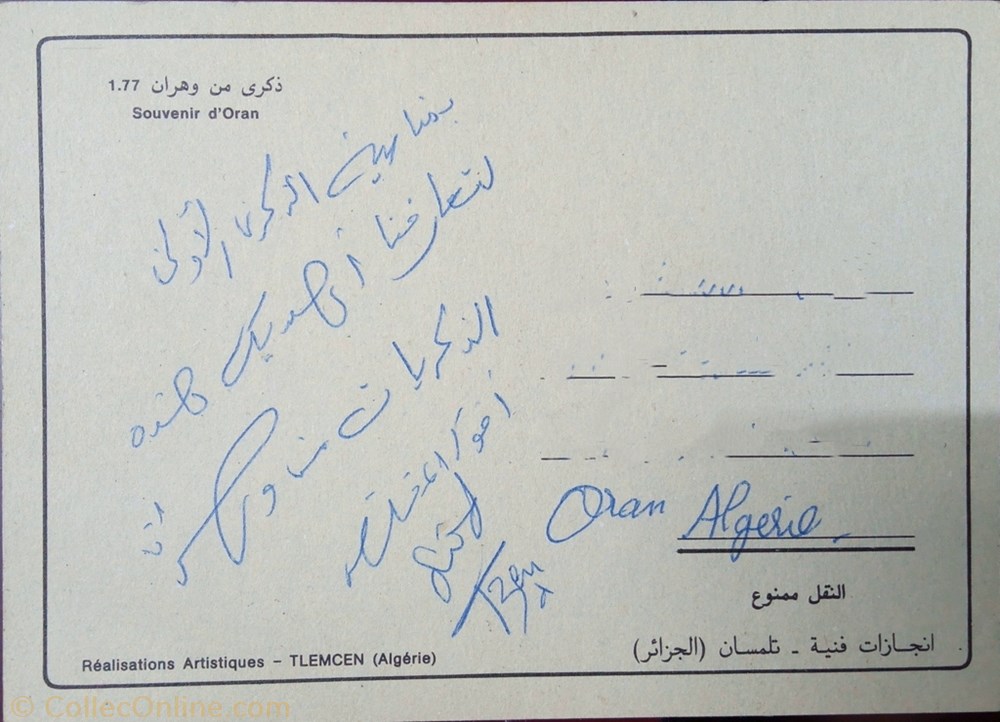 ذكرى من وهران 1.77
Souvenir d'Oran
بمناسبة الذكرى الأولى
لتعارفنا أهديك هذه
الذكريات من وهران
أخوك المخلص
Oran Algerie
النقل ممنوع
انجازات فنية - تلمسان (الجزائر)
Réalisations Artistiques – TLEMCEN (Algérie)
© CollecOnline.com